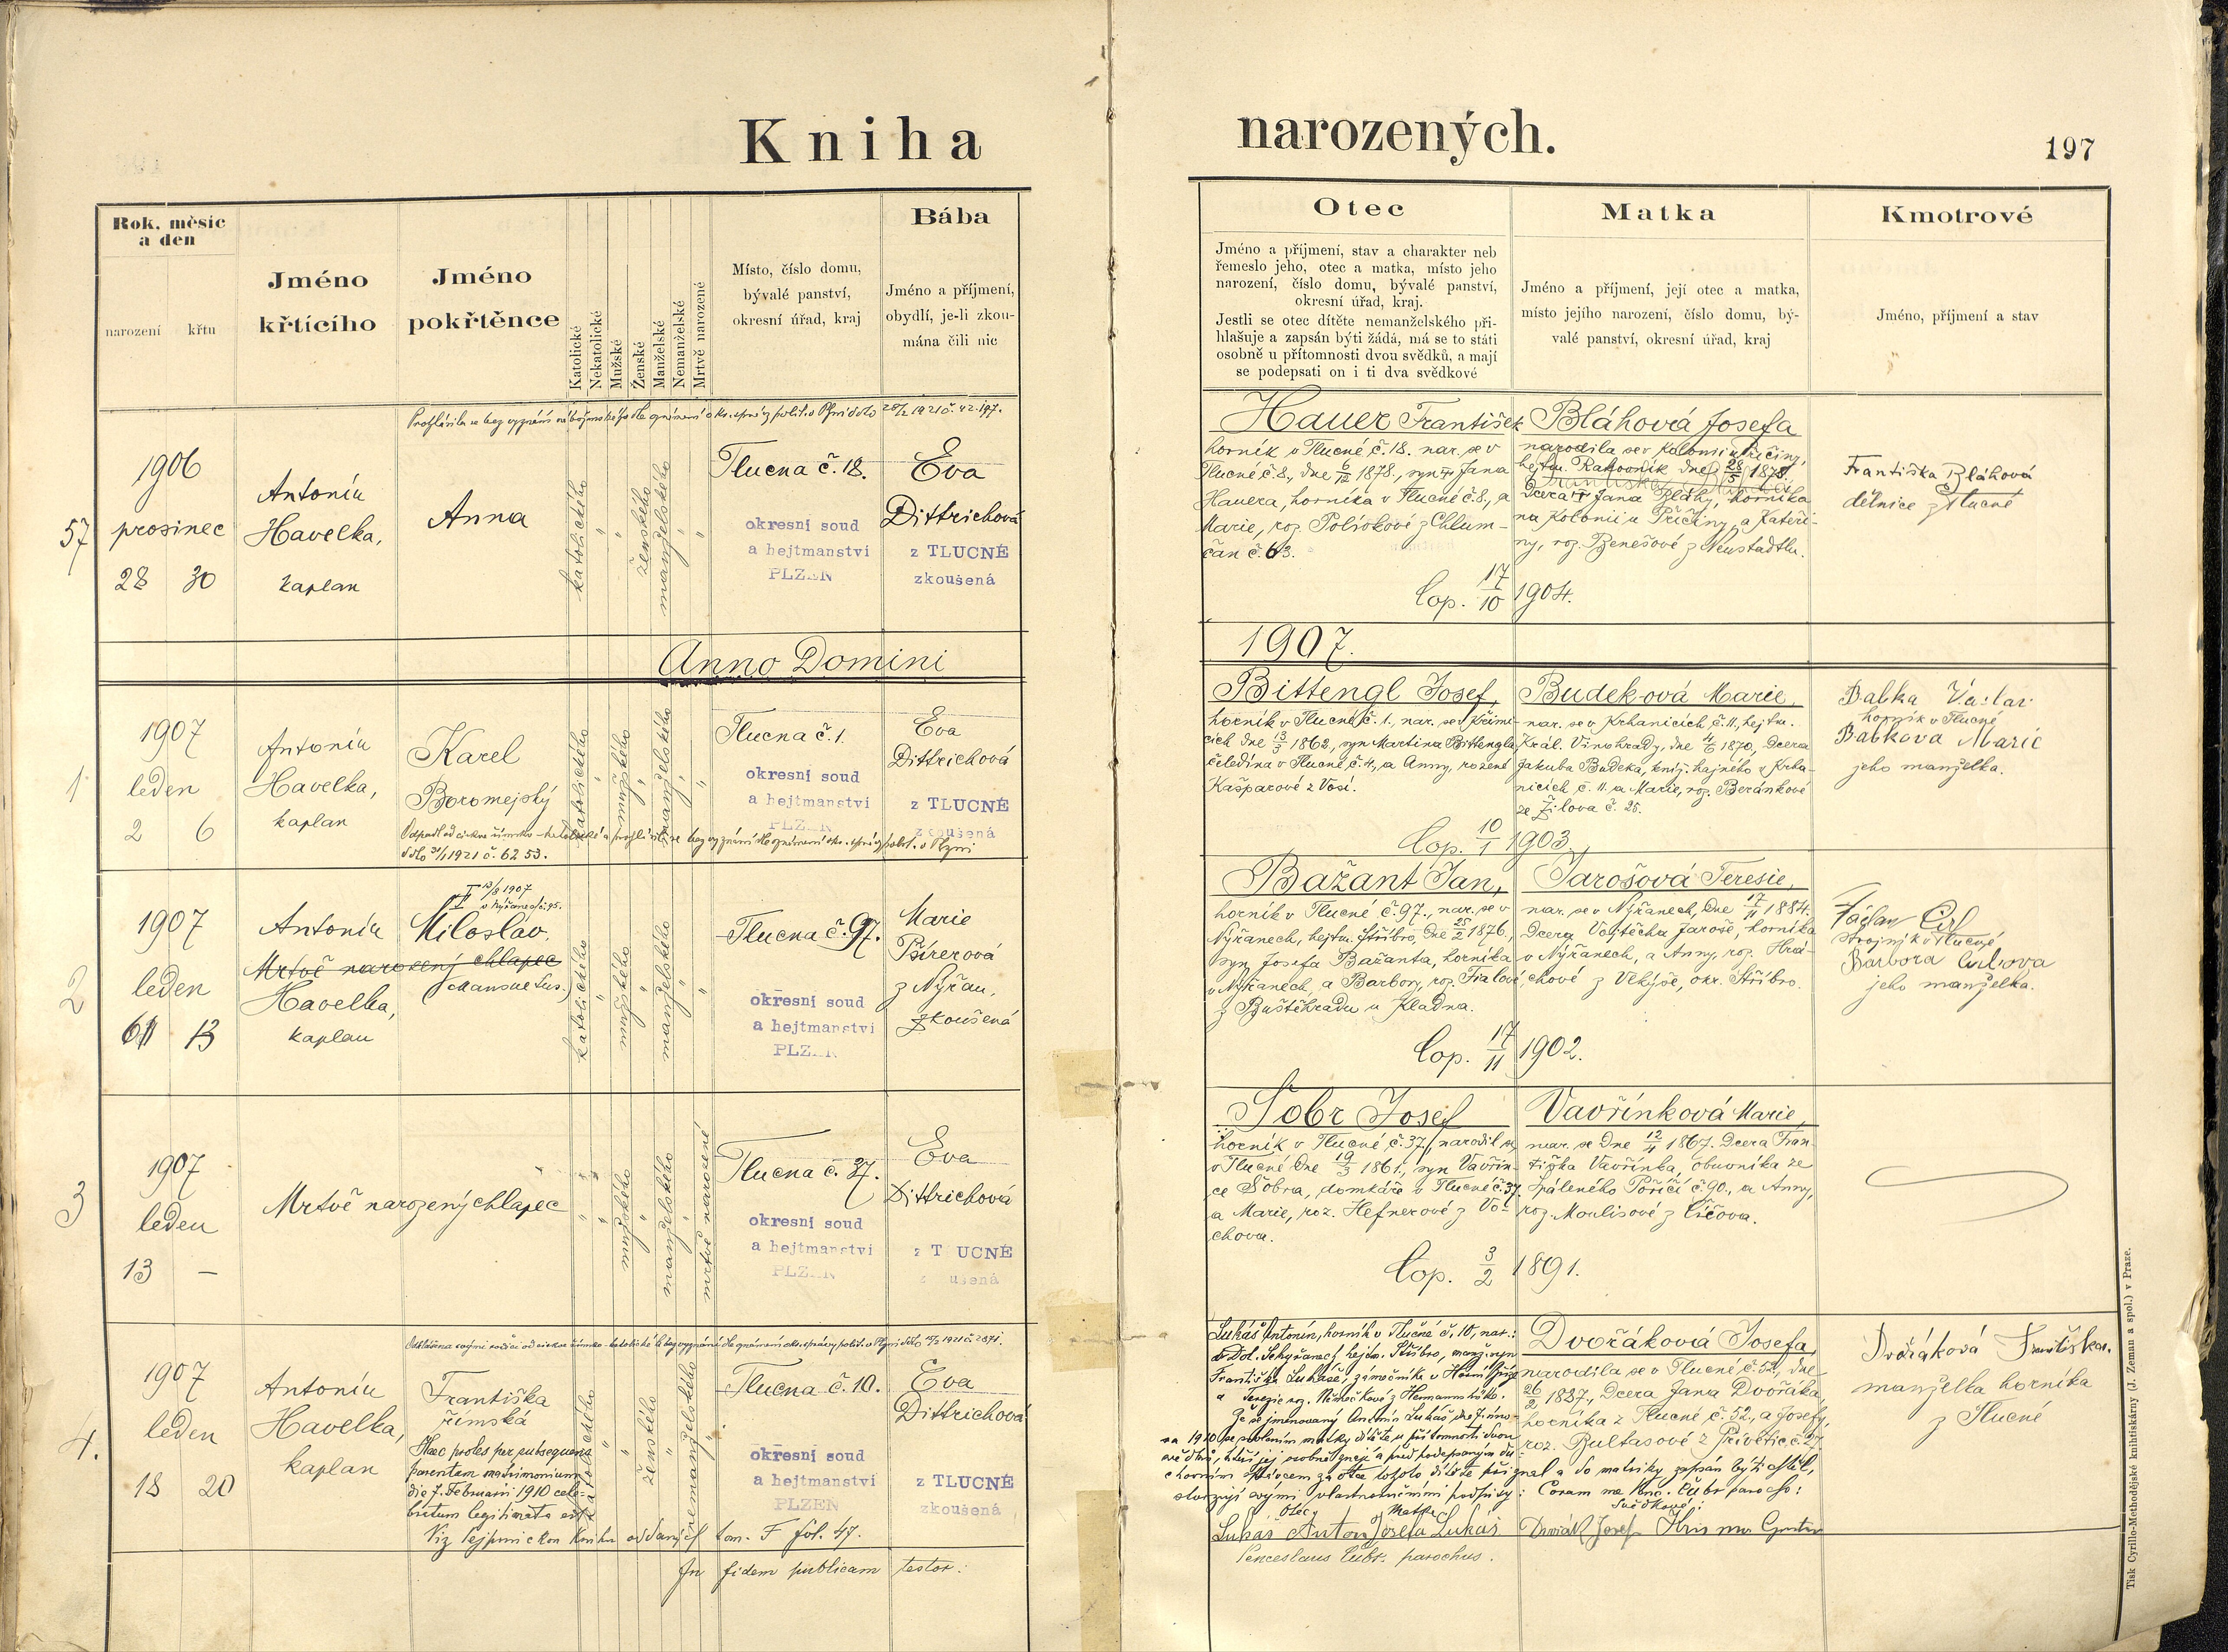 Kniha narozených.
197
Rok, měsíc
a den
narození
křtu
Jméno
křtícího
Jméno
pokřtěnce
Katolické
Nekatolické
Mužské
Ženské
Manželské
Nemanželské
Mrtvě narozené
Místo, číslo domu,
bývalé panství,
okresní úřad, kraj
Bába
Jméno a příjmení,
obydlí, je-li zkou-
mána čili nic
Otec
Jméno a příjmení, stav a charakter neb
řemeslo jeho, otec a matka, místo jeho
narození, číslo domu, bývalé panství,
okresní úřad, kraj.
Jestli se otec dítěte nemanželského při-
hlašuje a zapsán býti žádá, má se to státi
osobně u přítomnosti dvou svědků, a mají
se podepsati on i ti dva svědkové
Matka
Jméno a příjmení, její otec a matka,
místo jejího narození, číslo domu, bý-
valé panství, okresní úřad, kraj
Kmotrové
Jméno, příjmení a stav
57
1906
prosinec
28 30
Antonín
Havelka,
kaplan
Anna
katolického
ženského
manželského
Tlucna č. 18.
okresní soud
a hejtmanství
PLZEŇ
Eva
Dittrichová
z TLUCNÉ
zkoušená
Hauer František
horník v Tlucné č. 18. nar. se v
Tlucné č. 8., dne 6/12 1878., syn Jana
Hauera, horníka v Tlucné č. 8., a
Marie, roz. Polívkové z Chlum-
čan č. 63.
Bláhová Josefa
narodila se v Kolonii u Příčiny,
hejtm. Rakovník dne 28/5 1878
Dcera Jana Bláhy, horníka
na Kolonii u Příčiny, a Kateři-
ny, roz. Benešové z Neustadtlu.
Cop. 17/10 1904.
Františka Bláhová
dělnice z Tlucné
Anno Domini 1907.
1
1907
leden
2 6
Antonín
Havelka,
kaplan
Karel
Boromejský
katolického
mužského
manželského
Tlucna č. 1.
okresní soud
a hejtmanství
PLZEŇ
Eva
Dittrichová
z TLUCNÉ
zkoušená
Bittengl Josef,
horník v Tlucné č. 1., nar. se v Křimi-
cích dne 13/3 1862, syn Martina Bittengla,
čeledína v Tlucné č. 4., a Anny, rozené
Kašparové z Vosí.
Budeková Marie,
nar. se v Krhanicích č. 11, hejtm.
Král. Vinohrady, dne 4/6 1870, Dcera
Jakuba Budeka, kníž. hajného v Krha-
nicích č. 11. a Marie, roz. Beránkové
ze Žilova č. 25.
Cop. 10/1 1903.
Babka Václav
horník v Tlucné
Babkova Marie
jeho manželka.
2
1907
leden
11 13
Antonín
Mrtvě narozený chlapec
Havelka,
kaplan
13/8 1907
v Nýřanech č. 95.
Miloslav
(Mansuetus.)
katolického
mužského
manželského
Tlucna č. 97.
okresní soud
a hejtmanství
PLZEŇ
Marie
Pírerová
z Nýřan,
zkoušená
Bažant Jan,
horník v Tlucné č. 97., nar. se v
Nýřanech, hejtm. Stříbro, dne 25/2 1876.,
syn Josefa Bažanta, horníka
v Nýřanech, a Barbory, roz. Fialové
z Buštěhradu u Kladna.
Jarošová Teresie,
nar. se v Nýřanech, dne 17/11 1884.
Dcera Vojtěcha Jaroše, horníka
v Nýřanech, a Anny, roz. Hrá-
chové z Vekýše, okr. Stříbro.
Cop. 17/11 1902.
strojník v Tlucné
Barbora
jeho manželka.
3
1907
leden
13 —
Mrtvě narozený chlapec
mužského
manželského
mrtvě narozené
Tlucna č. 37.
okresní soud
a hejtmanství
PLZEŇ
Eva
Dittrichová
z TLUCNÉ
zkoušená
Šobr Josef
horník v Tlucné č. 37., narodil se
v Tlucné dne 19/3 1861., syn Vavřin-
ce Šobra, domkáře v Tlucné č. 37.
a Marie, roz. Hefnerové z Vo-
chova.
Vavřínková Marie,
nar. se dne 12/4 1867. Dcera Fran-
tiška Vavřínka, obuvníka ze
Spáleného Poříčí č. 90., a Anny,
roz. Moulisové z Číčova.
Cop. 3/2 1891.
4.
1907
leden
18 20
Antonín
Havelka,
kaplan
Františka
římská
Haec proles per subsequens
parentum matrimonium
die 7. Februarii 1910 cele-
bratum legitimata est.
ženského
nemanželského
Tlucna č. 10.
okresní soud
a hejtmanství
PLZEŇ
Eva
Dittrichová
z TLUCNÉ
zkoušená
kniha oddaných tom. F fol. 47.
In fidem publicam testor:
Lukáš Antonín, horník v Tlucné č. 10, nar.:
v Dol. Sekyřanech hejtm. Stříbro, manž. syn
Františka Lukáše, zámečníka v Horní Bříze
Že se jmenovaný Antonín Lukáš dne 7. úno-
ra 1910 se svolením matky dítěte u přítomnosti dvou
svědků, kteří jej osobně znají a před podepsaným du-
chovním správcem za otce tohoto dítěte přiznal a do matriky zapsán býti chtěl,
stvrzují svými vlastnoručními podpisy: Coram me Venc. Čubr parocho:
Otec Matka Svědkové:
Lukáš Anton Josefa Lukáš Dvořák Josef
Venceslaus Čubr. parochus.
Dvořáková Josefa,
narodila se v Tlucné č. 52, dne
26/2 1887., Dcera Jana Dvořáka,
horníka z Tlucné č. 52., a Josefy,
roz. Bultasové z Přívětic č. 27
Dvořáková Františka.
manželka horníka
z Tlucné
Tisk Cyrillo-Methodějské knihtiskárny (J. Zeman a spol.) v Praze.